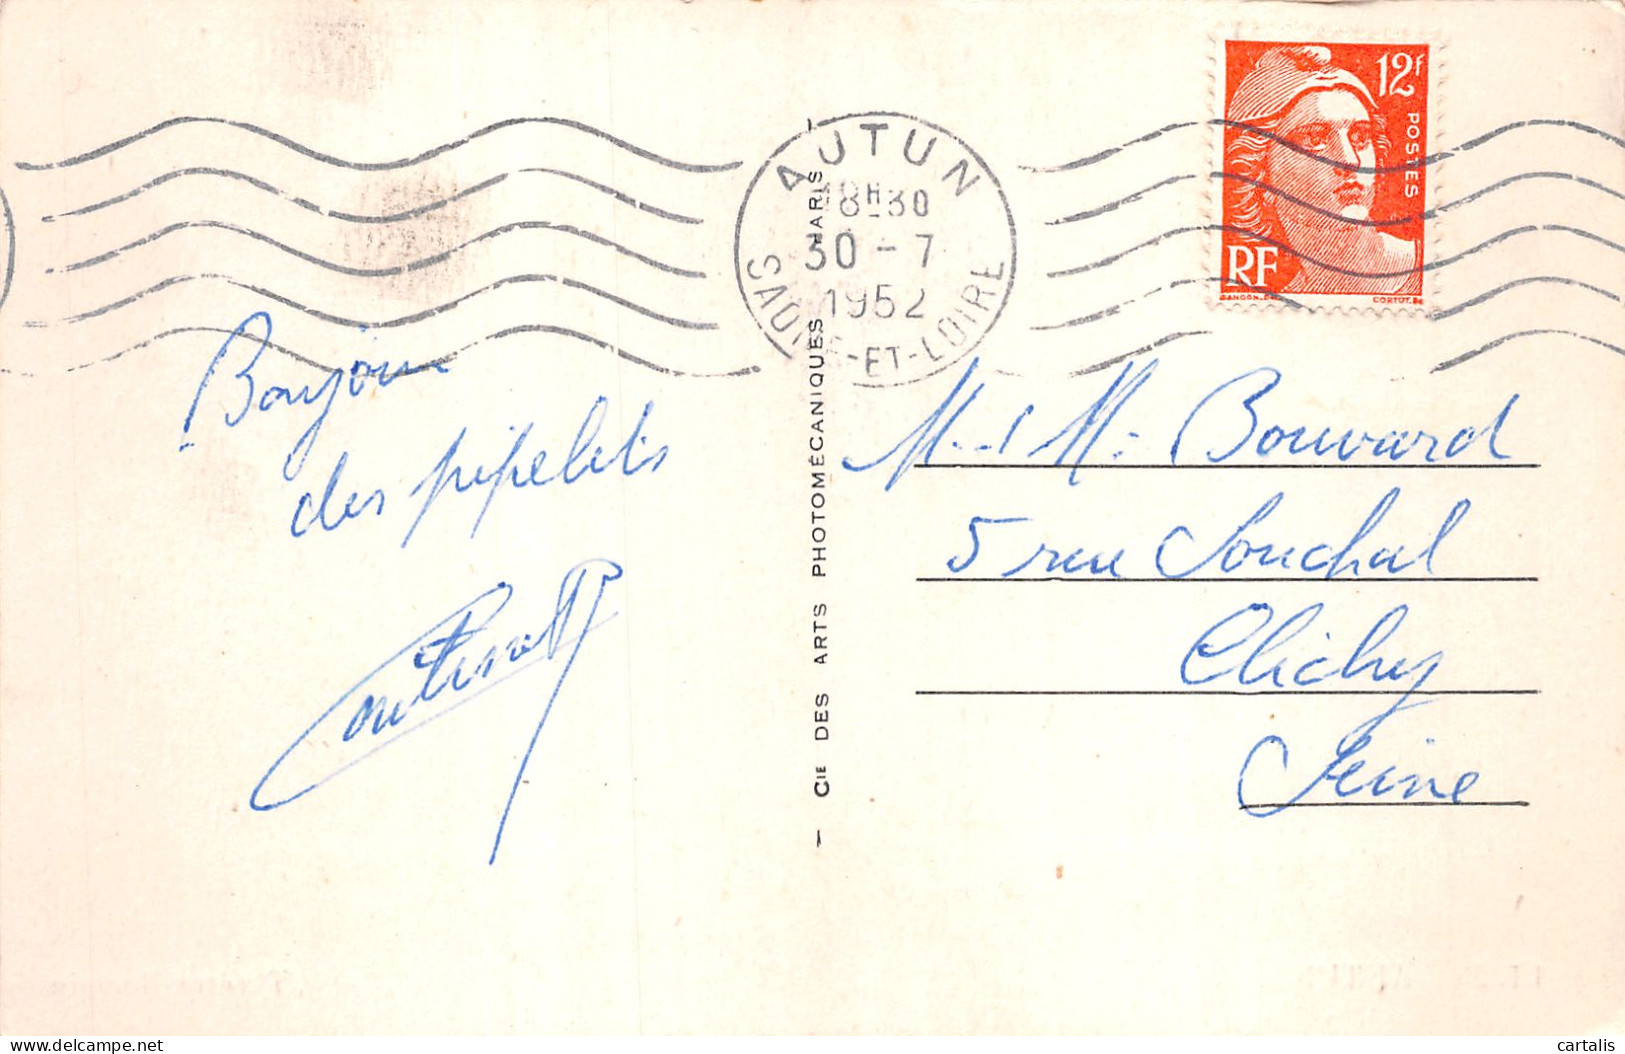 12f
POSTES
RF
GANDON.DEL
CORTOT.SC
AUTUN
18H30
30 - 7
1952
SAONE-ET-LOIRE
Bonjour
des pipelets
CIE DES ARTS PHOTOMÉCANIQUES PARIS
M. et Mme Bouvard
5 rue Souchal
Clichy
Seine
cartalis